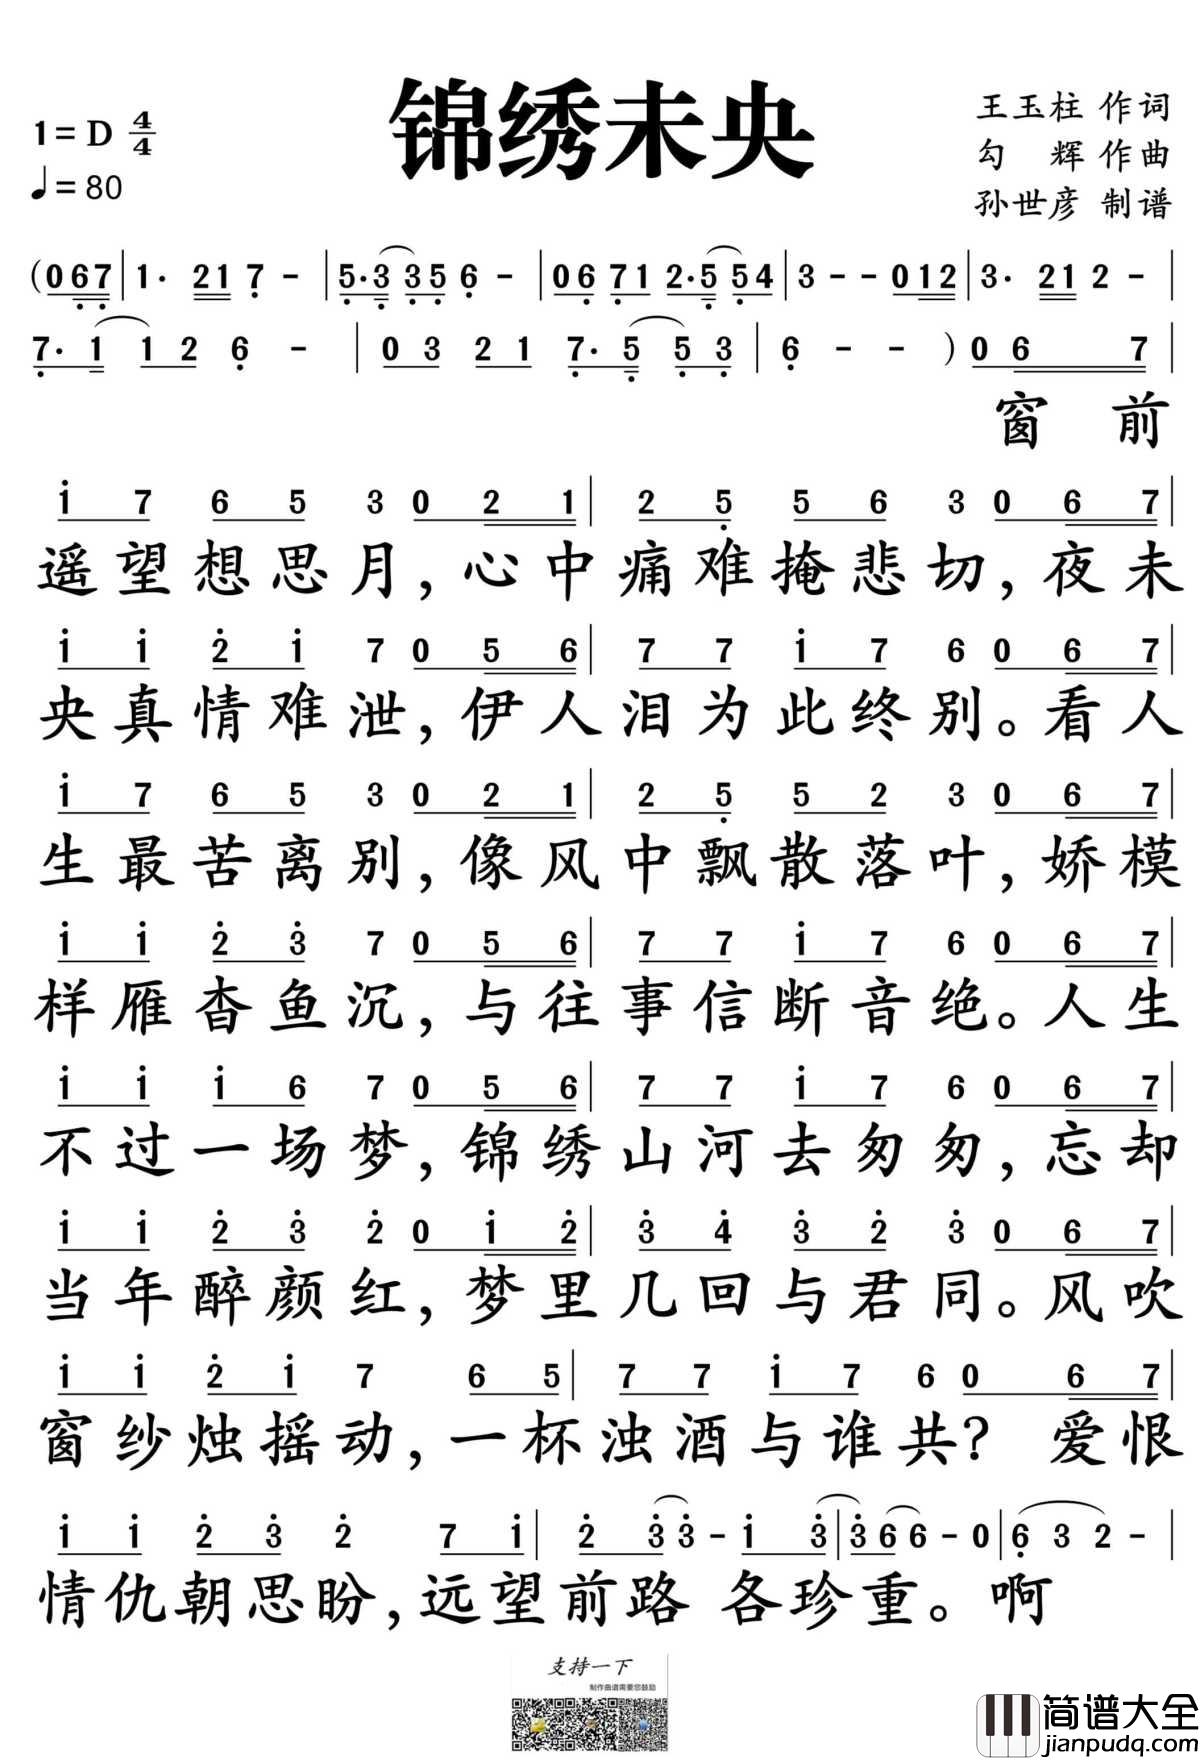 锦绣未央
1= D 4/4
♩= 80
王玉柱 作词
勾 辉 作曲
孙世彦 制谱
(0 6 7 | 1· 2 1 7 - | 5· 3 3 5 6 - | 0 6 7 1 2· 5 5 4 | 3 - - 0 1 2 | 3· 2 1 2 - |
7· 1 1 2 6 - | 0 3 2 1 7· 5 5 3 | 6 - - ) 0 6 7 |
窗 前
1 7 6 5 3 0 2 1 | 2 5 5 6 3 0 6 7 |
遥望想思月,心中痛难掩悲切,夜未
1 1 2 1 7 0 5 6 | 7 7 1 7 6 0 6 7 |
央真情难泄,伊人泪为此终别。看人
1 7 6 5 3 0 2 1 | 2 5 5 2 3 0 6 7 |
生最苦离别,像风中飘散落叶,娇模
1 1 2 3 7 0 5 6 | 7 7 1 7 6 0 6 7 |
样雁杳鱼沉,与往事信断音绝。人生
1 1 1 6 7 0 5 6 | 7 7 1 7 6 0 6 7 |
不过一场梦,锦绣山河去匆匆,忘却
1 1 2 3 2 0 1 2 | 3 4 3 2 3 0 6 7 |
当年醉颜红,梦里几回与君同。风吹
1 1 2 1 7 6 5 | 7 7 1 7 6 0 6 7 |
窗纱烛摇动,一杯浊酒与谁共?爱恨
1 1 2 3 2 7 1 | 2 3 3 - 1 3 | 3 6 6 - 0 | 6 3 2 - |
情仇朝思盼,远望前路各珍重。啊
支持一下
制作曲谱需要您鼓励
简谱大全
jianpudq.com